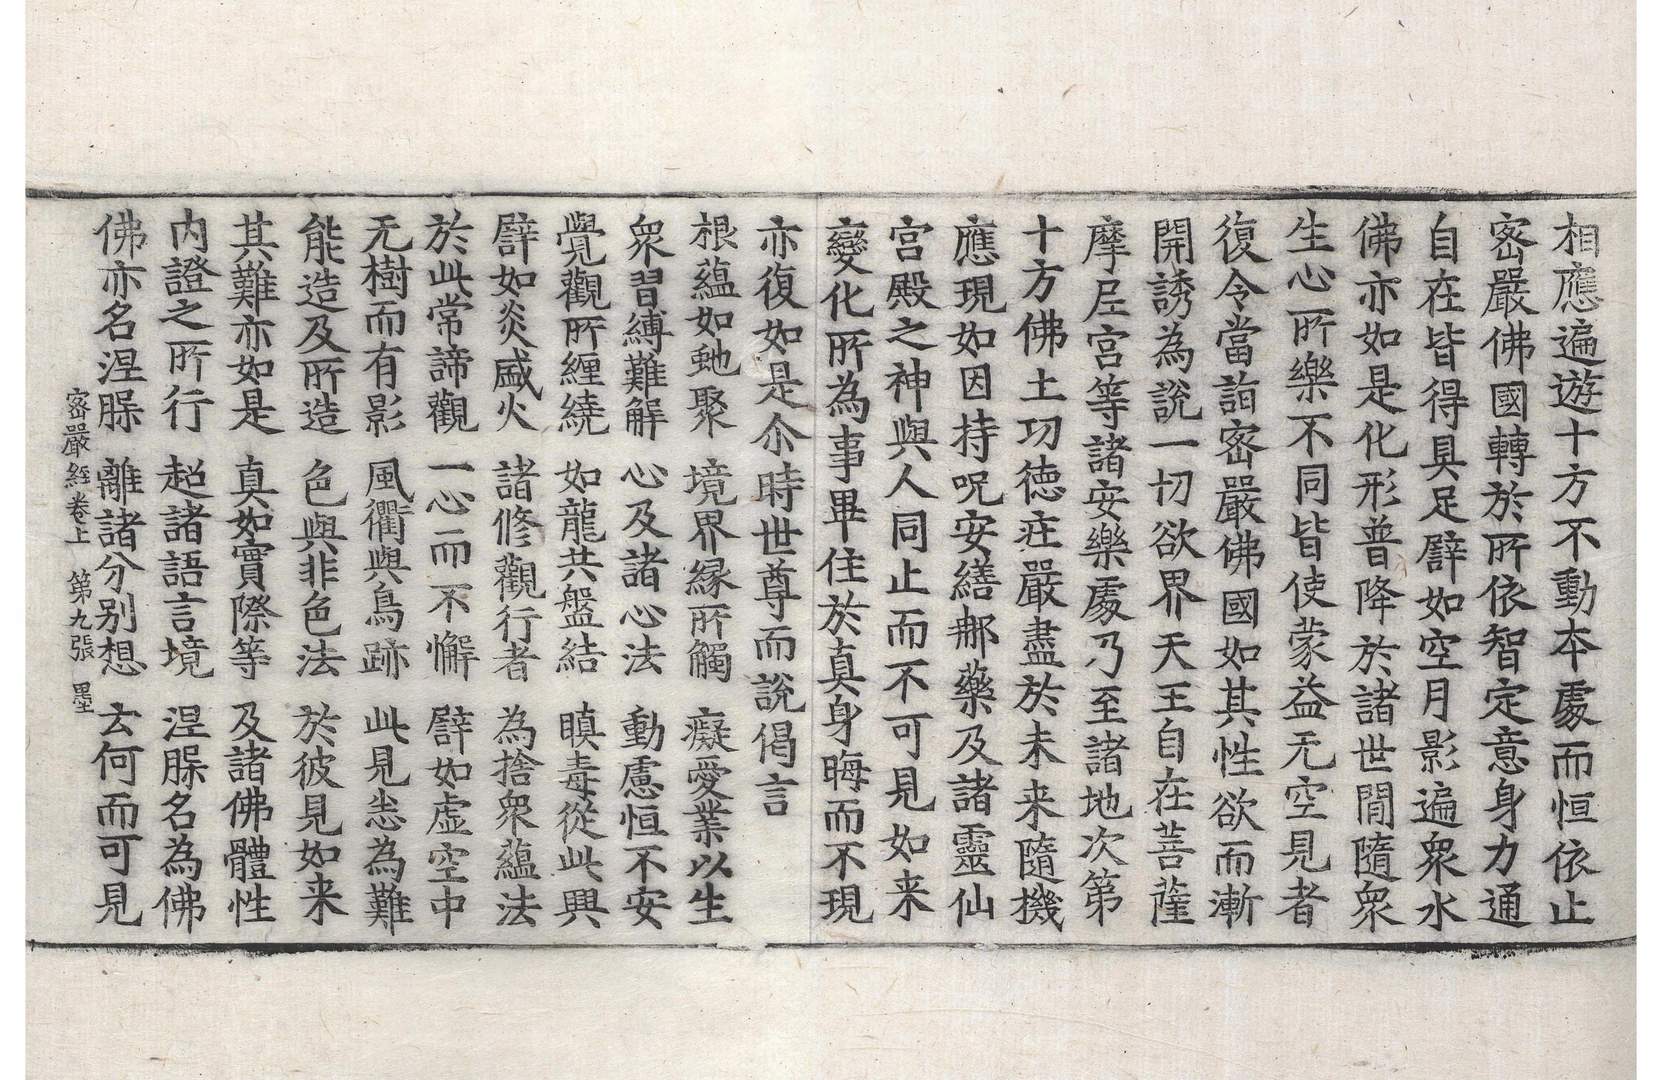 相應遍遊十方不動本處而恒依止
密嚴佛國轉於所依智定意身力通
自在皆得具足譬如空月影遍衆水
佛亦如是化形普降於諸世間隨衆
生心所樂不同皆使蒙益无空見者
復令當詣密嚴佛國如其性欲而漸
開誘為說一切欲界天王自在菩薩
摩尼宮等諸安樂處乃至諸地次第
十方佛土功德莊嚴盡於未来隨機
應現如因持呪安繕那藥及諸靈仙
宮殿之神與人同止而不可見如来
變化所為事畢住於真身晦而不現
亦復如是尒時世尊而說偈言
根蘊如虵聚 境界縁所觸 癡愛業以生
衆習縛難解 心及諸心法 動慮恒不安
覺觀所纏繞 如龍共盤結 瞋毒從此興
譬如炎盛火 諸修觀行者 為捨衆蘊法
於此常諦觀 一心而不懈 譬如虛空中
无樹而有影 風衢與鳥跡 此見悉為難
能造及所造 色與非色法 於彼見如来
其難亦如是 真如實際等 及諸佛體性
内證之所行 超諸語言境 涅槃名為佛
佛亦名涅槃 離諸分别想 云何而可見
密嚴經卷上 第九張 墨